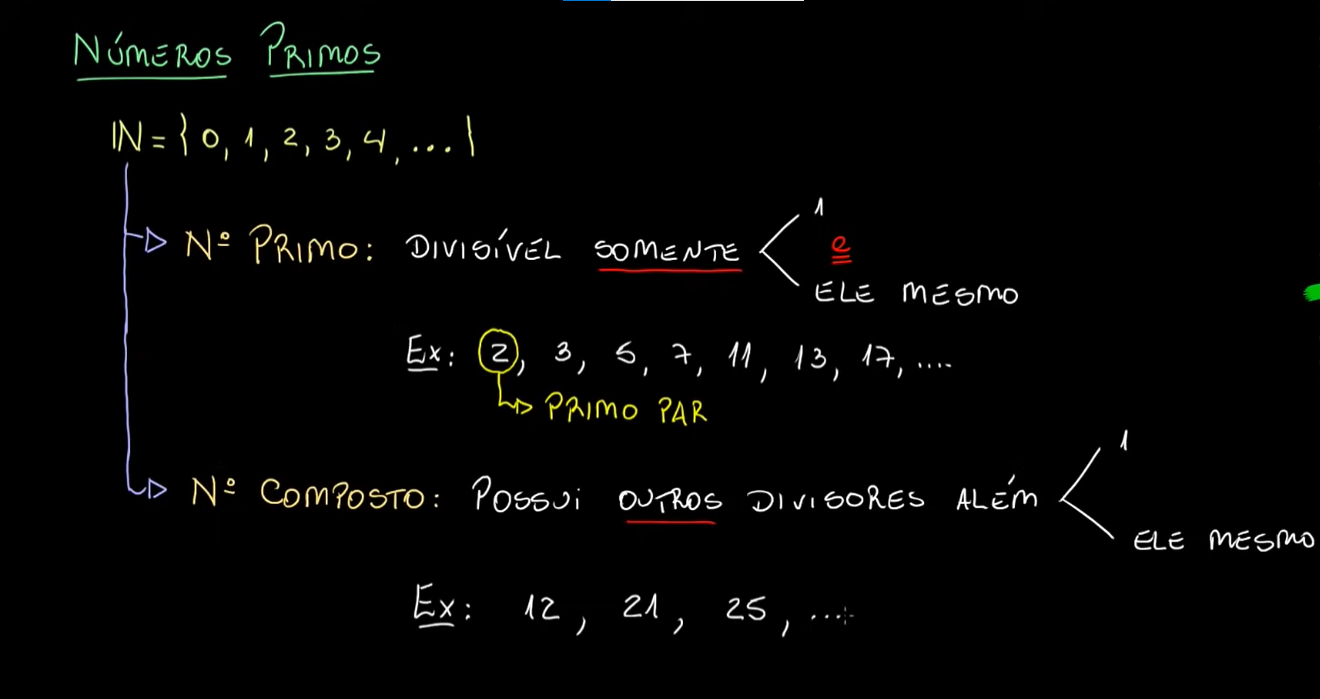 NÚMEROS PRIMOS
IN = { 0, 1, 2, 3, 4, ... }
1
Nº PRIMO: DIVISÍVEL SOMENTE e
ELE MESMO
Ex: 2, 3, 5, 7, 11, 13, 17, ....
PRIMO PAR
1
Nº COMPOSTO: POSSUi OUTROS DIVISORES ALÉM
ELE MESMO
Ex: 12, 21, 25, ...